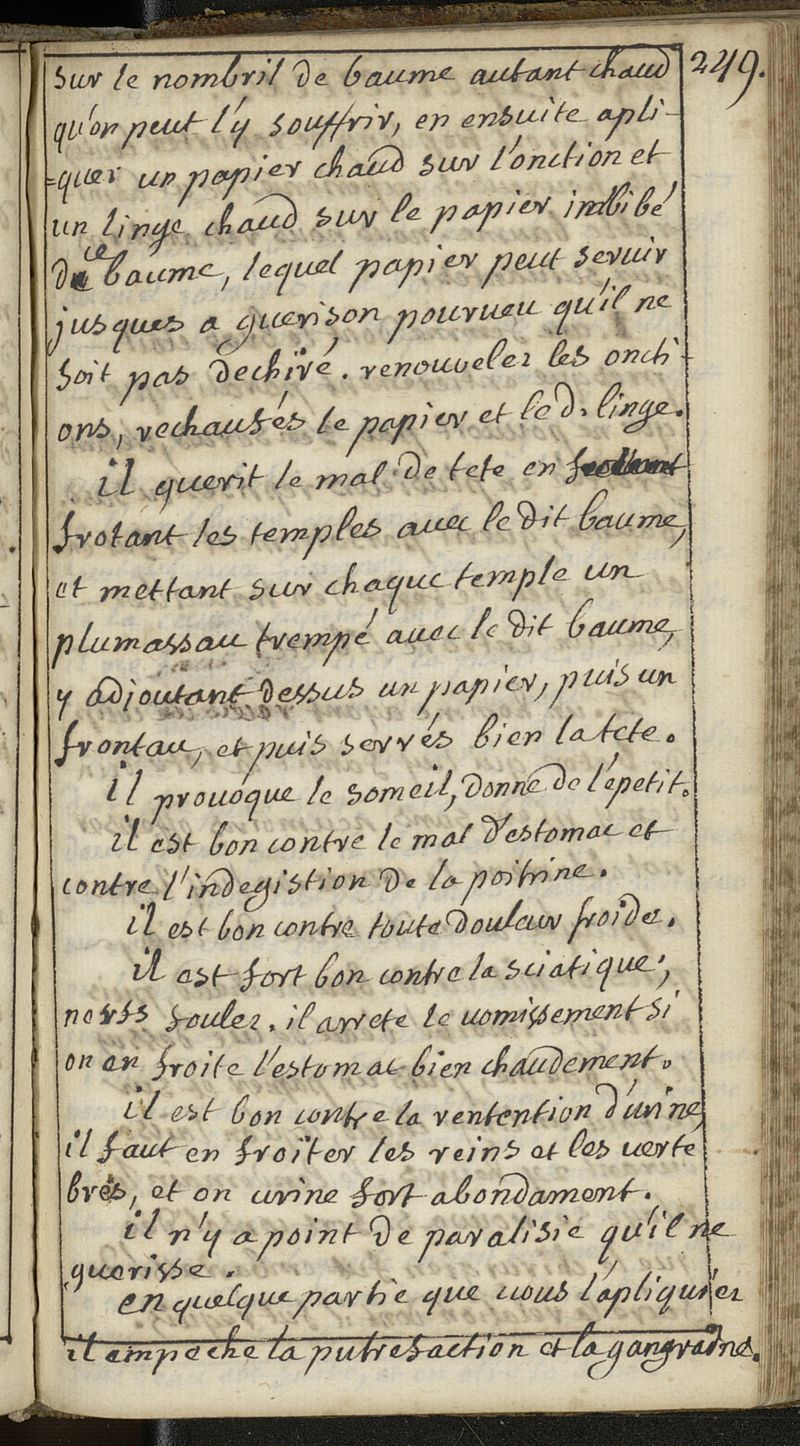 249.
sur le nombril de baume autant chaud
qu'on peut l'y souffrir, en ensuite apli-
=quer un papier chaud sur l'onction et
un linge chaud sur le papier imbibé
de ce baume, lequel papier peut seruir
jusques a guerison pourueu qu'il ne
soit pas dechiré. renouveler les oncti-
ons, rechaufés le papier et le d. linge.
il querit le mal de tete en
frotant les temples auec le dit baume,
et mettant sur chaque temple un
plumassau trempé auec le dit baume,
y adjoutant dessus un papier, puis un
frontau, et puis serrés bien la tete.
il prouoque le someil, donne de l'epetit.
il est bon contre le mal d'estomac et
contre l'indegistion de la poitrine.
il est bon contre toute douleur froide.
il est fort bon contre la sciatique,
nerfs foulez. il arrete le uomissement si
on en froite l'estomac bien chaudement.
il est bon contre la rentention d'urine,
il faut en froiter les reins et les uerte
bres, et on urine fort abondament.
il n'y a point de paralisie qu'il ne
guerisse.
en quelque partie que uous l'apliquiez
il empeche la putrefaction et la gangraine.